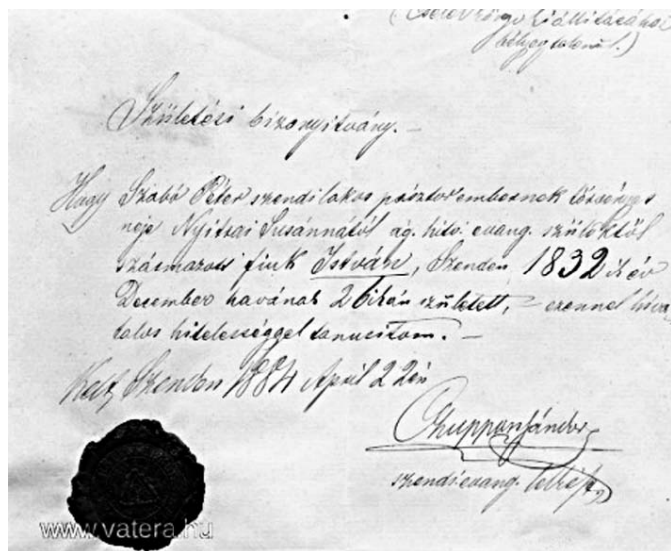 (Cselédkönyv kiállításához
bélyegtelenül.)
Születési bizonyitvány. –
Hogy Szabó Péter szendi lakos pásztor embernek törvényes
neje Nyitrai Susánnától ág. hitv. evang. szülöktöl
származott fiuk István, Szenden 1832ik év
December havának 26ikán született, – ezennel hiva
talos hitelességgel tanusitom. –
Kelt Szenden 1884 April 22én
Sándor
szendi evang. lelkész
www.vatera.hu